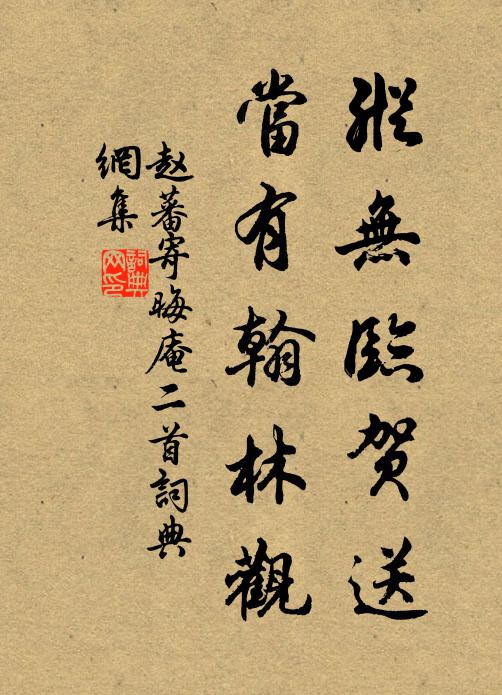 縱無臨賀送
當有翰林觀
赵蕃寄晦庵二首詞典
網集
詞典
网印